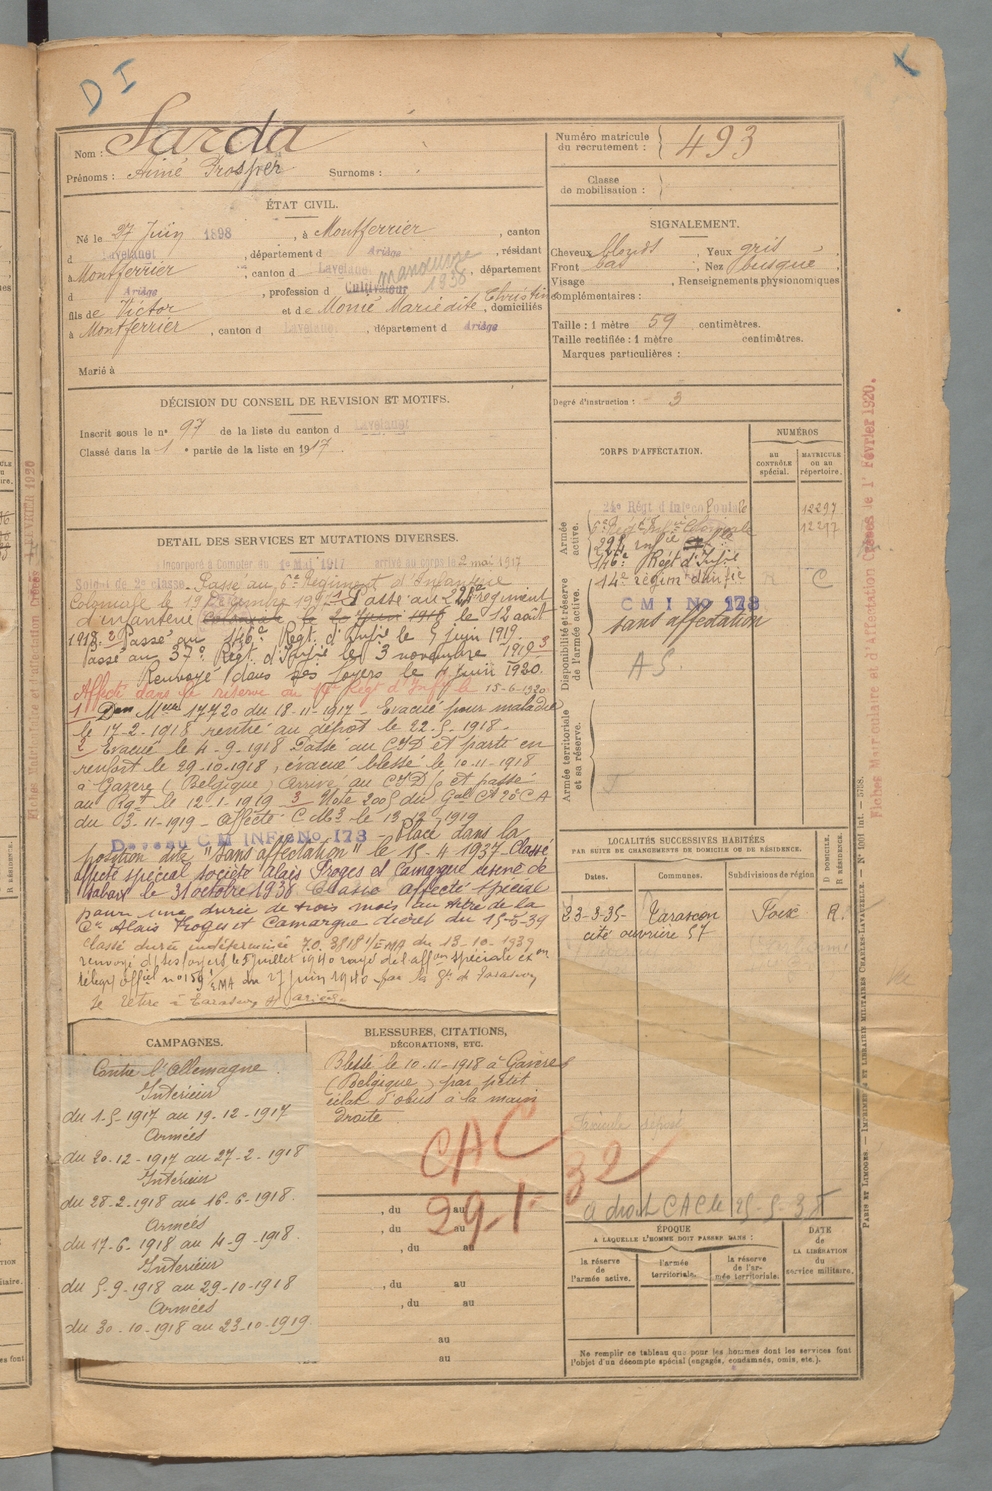 D I
Nom : Sarda
Prénoms : Aimé Prosper Surnoms :
Numéro matricule du recrutement : 493
Classe de mobilisation :
ÉTAT CIVIL.
Né le 27 Juin 1898, à Montferrier, canton
d Lavelanet, département d Ariège, résidant
à Montferrier, canton d Lavelanet, département
d Ariège, profession d Cultivateur manœuvre 1938
fils de Victor et de Monié Marie dite Christine, domiciliés
à Montferrier, canton d Lavelanet, département d Ariège
Marié à
SIGNALEMENT.
Cheveux blonds, Yeux gris,
Front bas, Nez busqué,
Visage , Renseignements physionomiques
complémentaires :
Taille : 1 mètre 59 centimètres.
Taille rectifiée : 1 mètre centimètres.
Marques particulières :
Degré d'instruction : 3
DÉCISION DU CONSEIL DE REVISION ET MOTIFS.
Inscrit sous le n° 97 de la liste du canton d Lavelanet
Classé dans la 1e partie de la liste en 1917
DETAIL DES SERVICES ET MUTATIONS DIVERSES.
Incorporé à compter du 1er Mai 1917 arrivé au corps le 2 mai 1917
Soldat de 2e classe. Passé au 5e Régiment d'Infanterie
Coloniale le 19 Décembre 1917. Passé au 22e régiment
d'infanterie Coloniale le 20 Juin 1918 le 12 août
1918. 2 Passé au 146e Régt. d'Infie le 7 juin 1919.
Passé au 37e Régt. d'Infie le 3 novembre 1919. 3
Renvoyé dans ses foyers le juin 1920.
Affecté dans la réserve au 14e Régt d'Infie le 15-6-1920
1 Don Meur 17720 du 18-11-1917 - Evacué pour maladie
le 17-2-1918 rentré au dépôt le 22-5-1918 -
2 Evacué le 4-9-1918 Passé au CID et parti en
renfort le 29-10-1918, évacué blessé le 10-11-1918
à Gavere (Belgique) Arrivé au CID et passé
au Rgt le 12-1-1919 3 Note 2005 du Gal Ct 20e CA
du 3-11-1919 - Affecté C M3 le 13-12-1919
Dev. au CM INFie No 173 Placé dans la
position dite "sans affectation" le 15-4-1937 - Classé
affecté spécial société Alais Froges et Camargue réserve de
Tabaux le 31 octobre 1938 Classé affecté spécial
pour une durée de trois mois au titre de la
Cie Alais Froges et Camargue - décret du 15-5-39
Classé durée indéterminée 7.0. 3818 1/EMA du 13-10-1939
renvoyé ds ses foyers le 5 juillet 1940 rayé de l'affon spéciale ex on
télégr offiel n° 159 1/EMA du 27 juin 1940 par la Gie de Tarascon
Se retire à Tarascon s/ Ariège
CORPS D'AFFECTATION.
NUMÉROS
AU CONTRÔLE SPÉCIAL.
MATRICULE OU AU RÉPERTOIRE.
Armée active.
24e Régt d'Infie Coloniale 12297
5e Régt d'Infie Coloniale 12217
22e infie
146e Régt d'Infie
Disponibilité et réserve de l'armée active.
14e régim d'infie C
C M I No 173
sans affectation
A S.
Armée territoriale et sa réserve.
LOCALITÉS SUCCESSIVES HABITÉES
PAR SUITE DE CHANGEMENTS DE DOMICILE OU DE RÉSIDENCE.
Dates. Communes. Subdivisions de région. D DOMICILE. R RÉSIDENCE.
23-3-35- Tarascon Foix R.
cité ouvrière 57
a droit CAC le 25-5-38
CAMPAGNES.
Contre l'Allemagne.
Intérieur
du 1-5-1917 au 19-12-1917
Armées
du 20-12-1917 au 27-2-1918
Intérieur
du 28-2-1918 au 16-6-1918.
Armées
du 17-6-1918 au 4-9-1918.
Intérieur
du 5-9-1918 au 29-10-1918
Armées
du 30-10-1918 au 23-10-1919.
BLESSURES, CITATIONS,
DÉCORATIONS, ETC.
Blessé le 10-11-1918 à Gavere
(Belgique) par petit
éclat d'obus à la main
droite
CAC
291- 32
, du au
, du au
, du au
, du au
, du au
au
au
ÉPOQUE
A LAQUELLE L'HOMME DOIT PASSER DANS :
la réserve de l'armée active.
l'armée territoriale.
la réserve de l'armée territoriale.
DATE DE LA LIBÉRATION du service militaire.
Ne remplir ce tableau que pour les hommes dont les services font
l'objet d'un décompte spécial (engagés, condamnés, omis, etc.).
Fiches Matriculaire et d'Affectation Créées le 1er Février 1920.
PARIS ET LIMOGES. — IMPRIMERIE ET LIBRAIRIE MILITAIRES CHARLES-LAVAUZELLE.